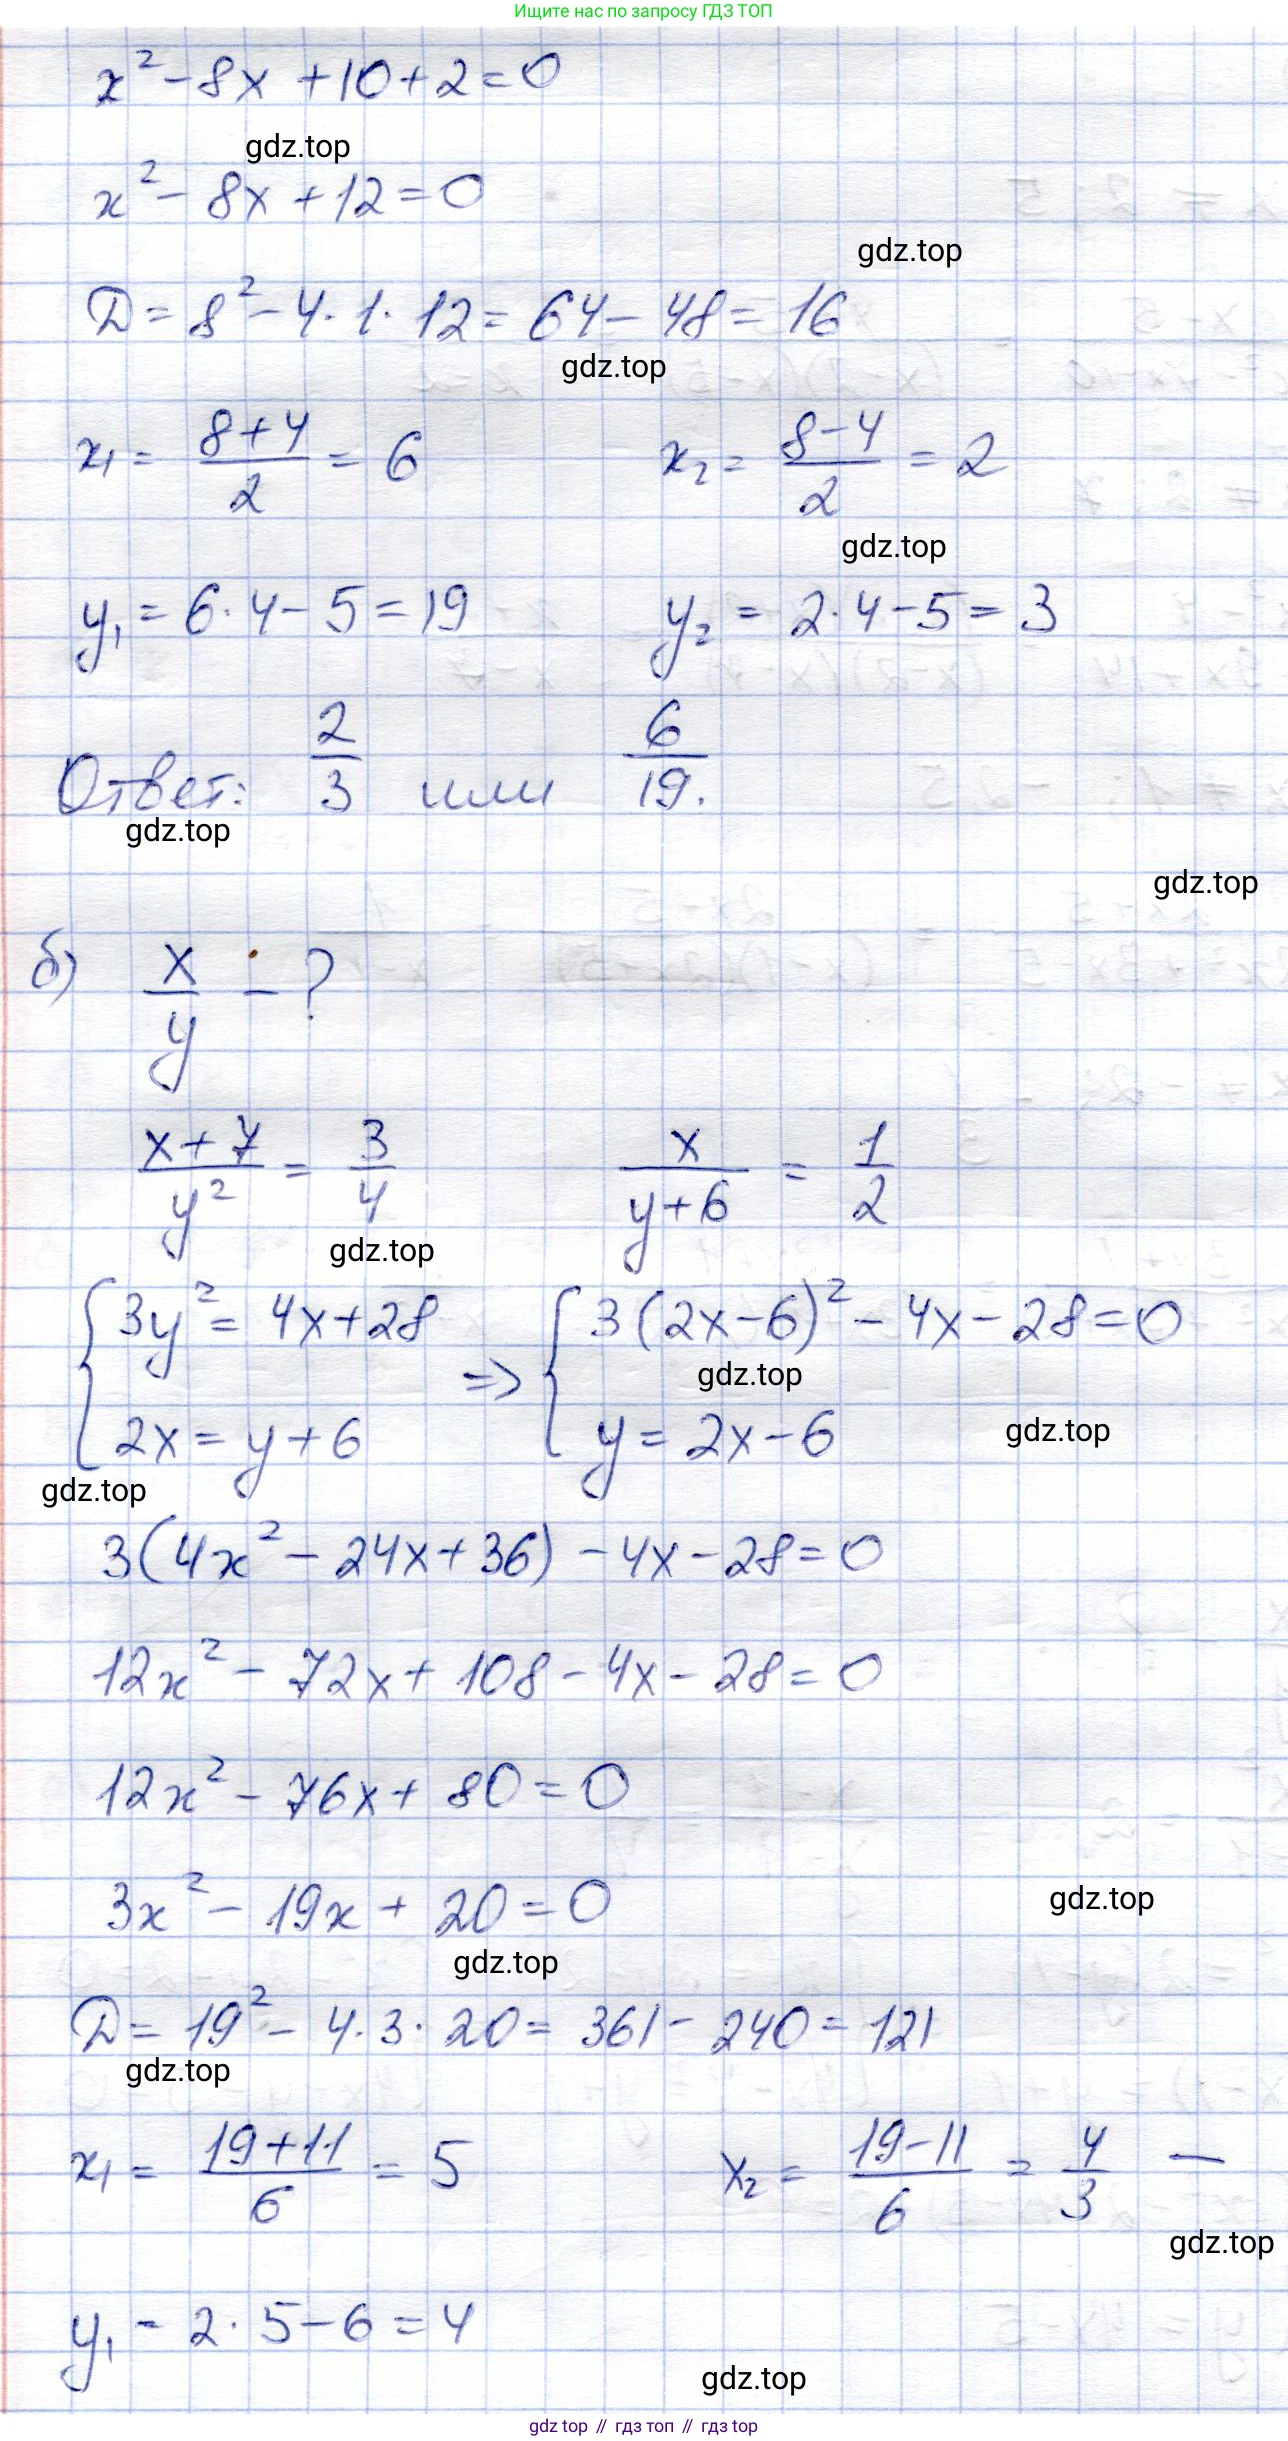 Ищите нас по запросу ГДЗ ТОП
x² - 8x + 10 + 2 = 0
gdz.top
x² - 8x + 12 = 0
gdz.top
D = 8² - 4 · 1 · 12 = 64 - 48 = 16
gdz.top
x₁ = (8+4)/2 = 6    x₂ = (8-4)/2 = 2
gdz.top
y₁ = 6 · 4 - 5 = 19    y₂ = 2 · 4 - 5 = 3
Ответ: 2/3 или 6/19.
gdz.top
gdz.top
б) x/y - ?
(x+7)/y² = 3/4    x/(y+6) = 1/2
gdz.top
{ 3y² = 4x + 28    => { 3(2x-6)² - 4x - 28 = 0
gdz.top
{ 2x = y + 6    { y = 2x - 6
gdz.top
gdz.top
3(4x² - 24x + 36) - 4x - 28 = 0
12x² - 72x + 108 - 4x - 28 = 0
12x² - 76x + 80 = 0
3x² - 19x + 20 = 0
gdz.top
gdz.top
D = 19² - 4 · 3 · 20 = 361 - 240 = 121
gdz.top
x₁ = (19+11)/6 = 5    x₂ = (19-11)/6 = 4/3 —
gdz.top
y₁ = 2 · 5 - 6 = 4
gdz.top
gdz top // гдз топ // гдз top